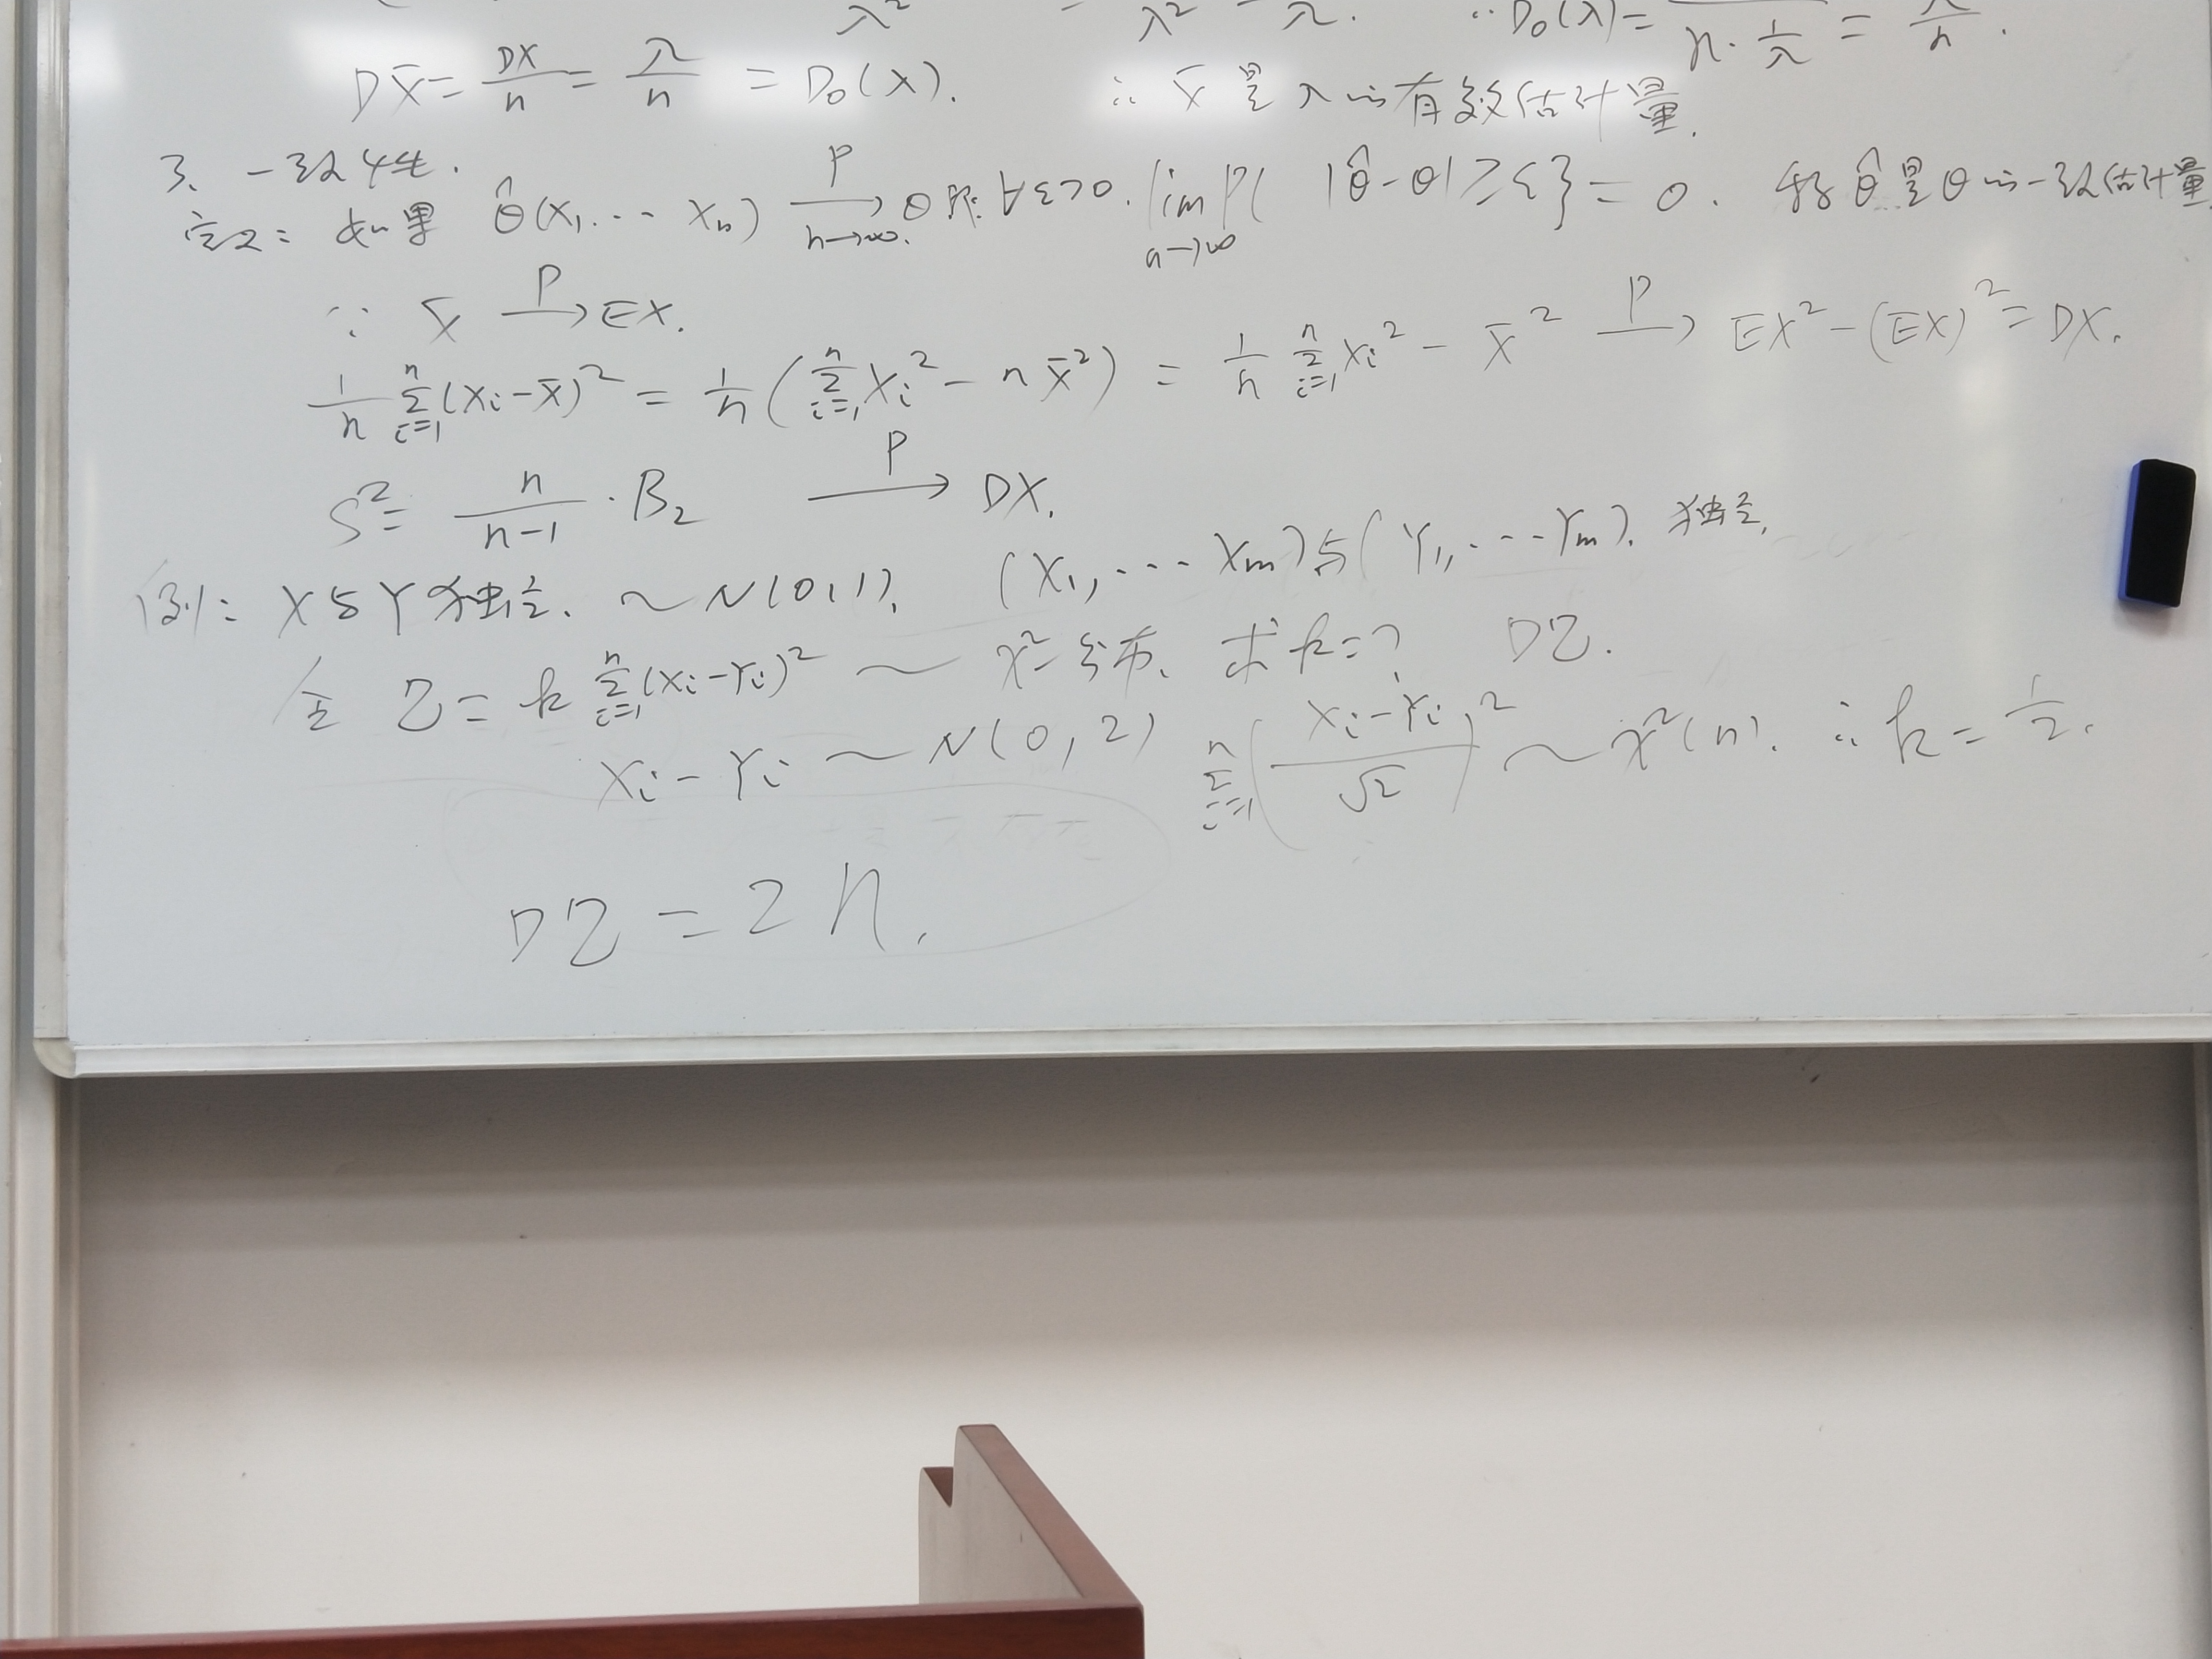 λ² = λ² = λ. ∵ D₀(λ) = n·1/λ = λ/n.
DX̄ = DX/n = λ/n = D₀(λ). ∴ X̄ 是 λ 的有效估计量.
3、一致性.
定义: 如果 θ̂(X₁...Xₙ) —P→ (n→∞) θ 即: ∀ε>0. lim(n→∞) P{ |θ̂-θ| ≥ ε} = 0. 称 θ̂ 是 θ 的一致估计量
∵ X̄ —P→ EX.
1/n Σ(i=1→n)(Xi-X̄)² = 1/n (Σ(i=1→n)Xi² - nX̄²) = 1/n Σ(i=1→n)Xi² - X̄² —P→ EX²-(EX)² = DX.
S² = n/(n-1) · B₂ —P→ DX.
例: X与Y独立. ~N(0,1). (X₁,...Xm)与(Y₁,...Ym). 独立.
令 Z = k Σ(i=1→n)(Xi-Yi)² ~ χ²分布. 求k=? DZ.
Xi-Yi ~ N(0,2) Σ(i=1→n)((Xi-Yi)/√2)² ~ χ²(n). ∴ k = 1/2.
DZ = 2n.